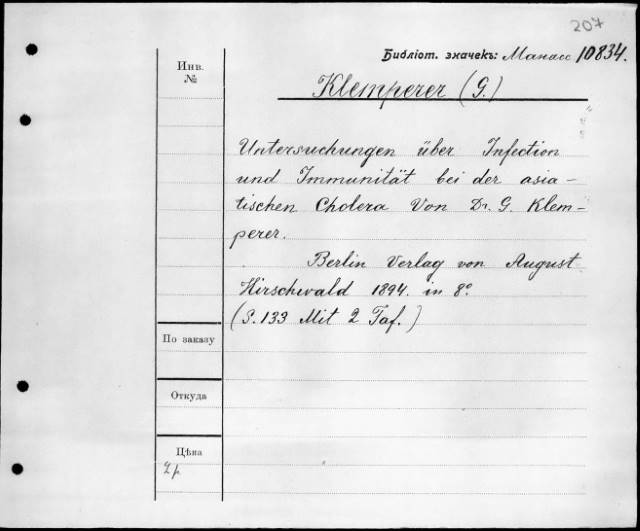 207
Библіот. значекъ: Манасс 10834.
Инв.
№
Klemperer (G.)
Untersuchungen über Infection
und Immunität bei der asia-
tischen Cholera Von Dr. G. Klem-
perer.
Berlin Verlag von August
Hirschwald 1894. in 8º
(S. 133 Mit 2 Taf.)
По заказу
Откуда
Цѣна
2 р